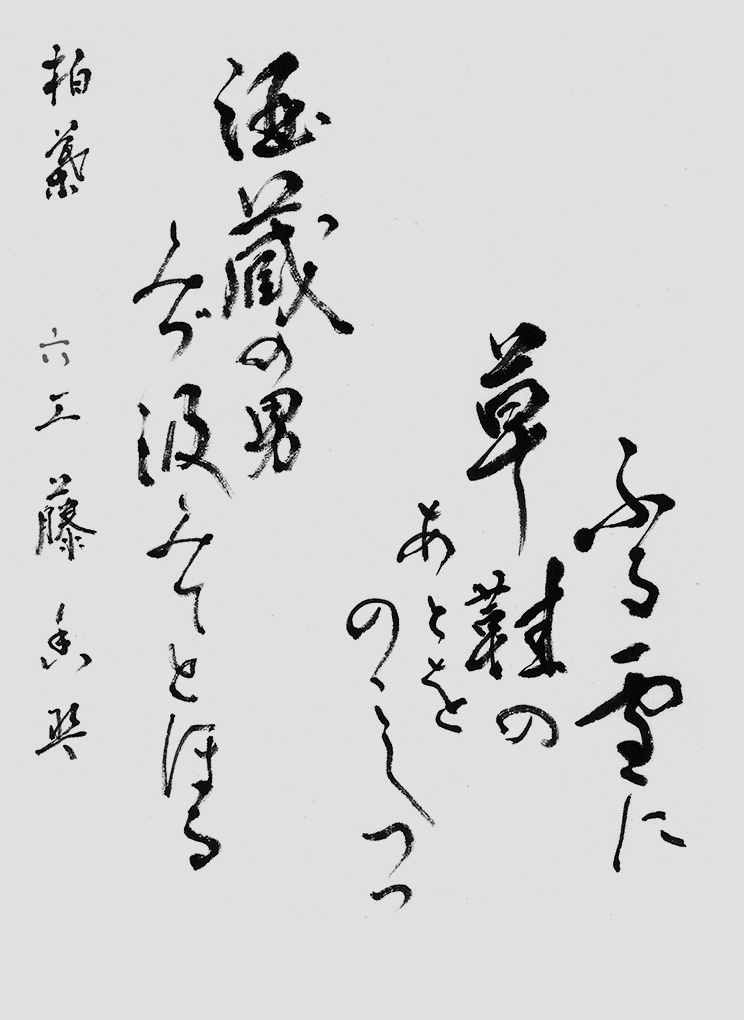 ふる雪に
草鞋の
あとを
のこしつつ
酒蔵の男
みづ汲みてとほる
柏葉 六工 藤香